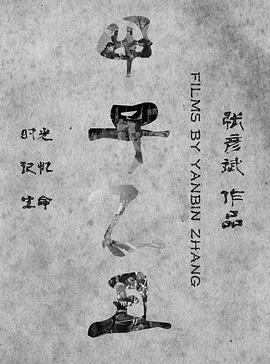 张彦斌 作品
FILMS BY YANBIN ZHANG
甲子乙丑
时光
记忆
生命